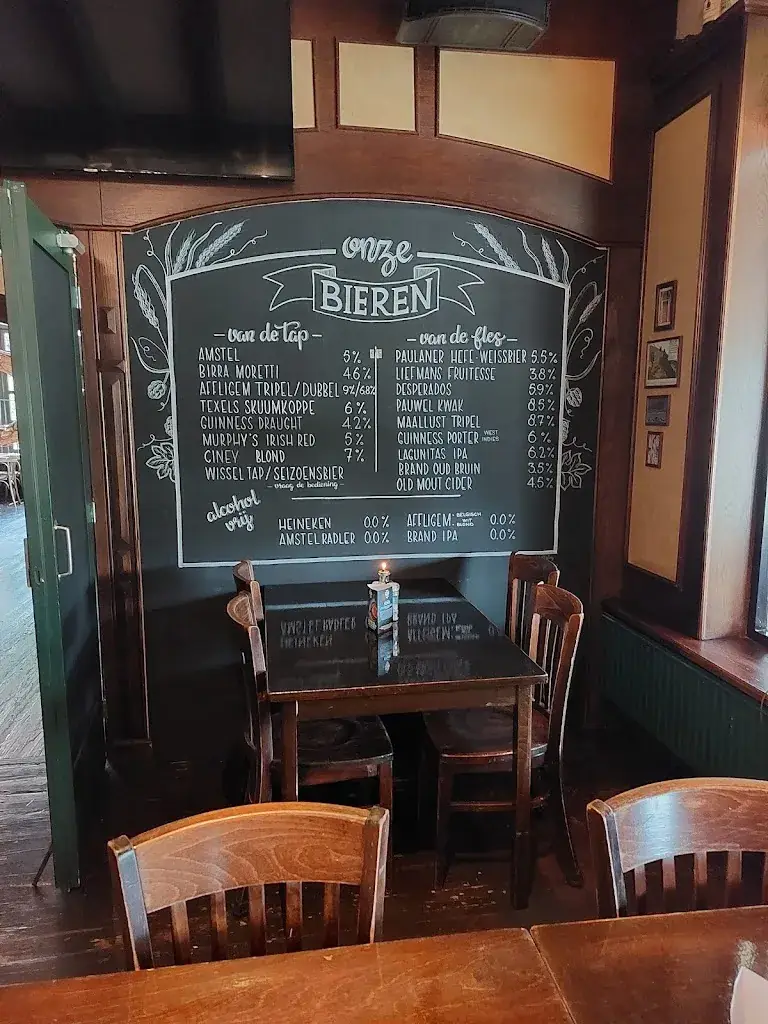 onze
BIEREN
- van de tap -
AMSTEL 5%
BIRRA MORETTI 4.6%
AFFLIGEM TRIPEL/DUBBEL 9%/6.8%
TEXELS SKUUMKOPPE 6%
GUINNESS DRAUGHT 4.2%
MURPHY'S IRISH RED 5%
CINEY BLOND 7%
WISSELTAP/SEIZOENSBIER
- vraag de bediening -
- van de fles -
PAULANER HEFE-WEISSBIER 5.5%
LIEFMANS FRUITESSE 3.8%
DESPERADOS 5.9%
PAUWEL KWAK 8.5%
MAALLUST TRIPEL 8.7%
GUINNESS PORTER WEST INDIES 6%
LAGUNITAS IPA 6.2%
BRAND OUD BRUIN 3.5%
OLD MOUT CIDER 4.5%
alcohol
vrij
HEINEKEN 0.0%
AMSTEL RADLER 0.0%
AFFLIGEM: BELGISCH WIT BLOND 0.0%
BRAND IPA 0.0%